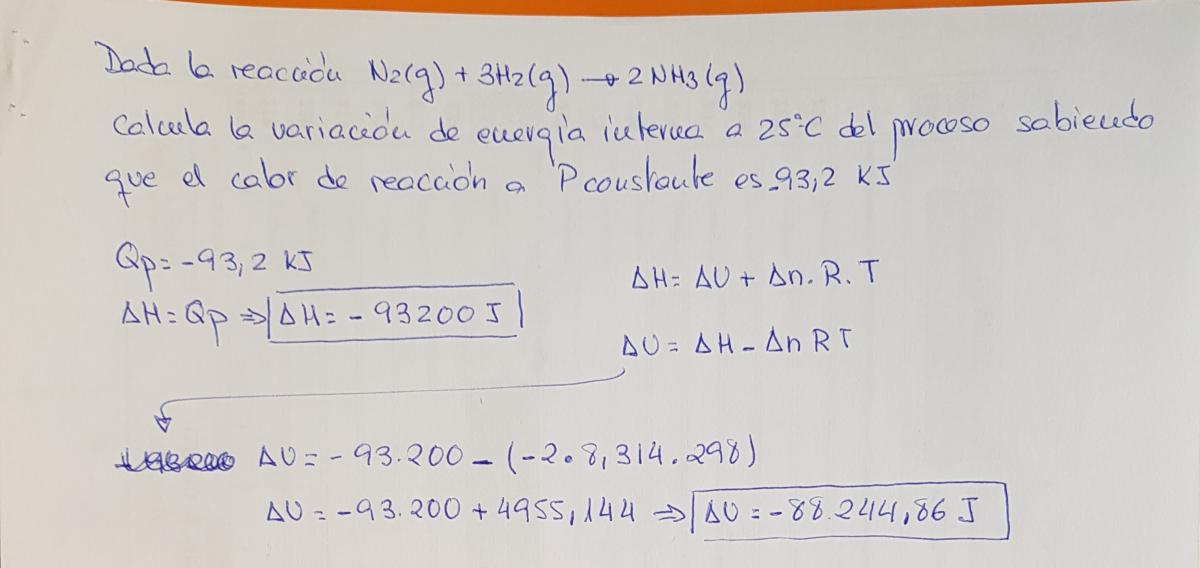 Dada la reacción N2(g) + 3H2(g) → 2 NH3(g)
Calcula la variación de energía interna a 25°C del proceso sabiendo
que el calor de reacción a P constante es -93,2 KJ
Qp = -93,2 KJ
ΔH = Qp ⇒ ΔH = - 93200 J
ΔH = ΔU + Δn. R. T
ΔU = ΔH - Δn R T
ΔU = - 93.200 - (-2 · 8,314 . 298)
ΔU = -93.200 + 4955,144 ⇒ ΔU = -88.244,86 J